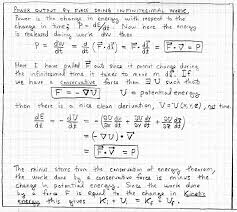 POWER OUTPUT BY FIELD DOING INFINITESIMAL WORK.
Power is the change in energy with respect to the
change in time! P = dE/dt. Now here the energy
is released doing work dW thus
P = dW/dt = d/dt (F·dr) = F·dr/dt = F·V = P
Here I have pulled F outs since it cannot change during
the infinitesimal time it takes to move dr. If
we have a conservative force then ∃ U such that
F = -∇U U = potential energy
then there is a nice clean derivation, U = U(x,y,z), no time.
dU/dt = - ∂U/∂x dx/dt - ∂U/∂y dy/dt - ∂U/∂z dz/dt
= (-∇U)·V
= F·V
The minus stems from the conservation of energy theorem,
the work done by a conservative force is minus the
change in potential energy. Since the work done
by a force is equal to the change in kinetic
energy this gives K₁ + U₁ = K₂ + U₂